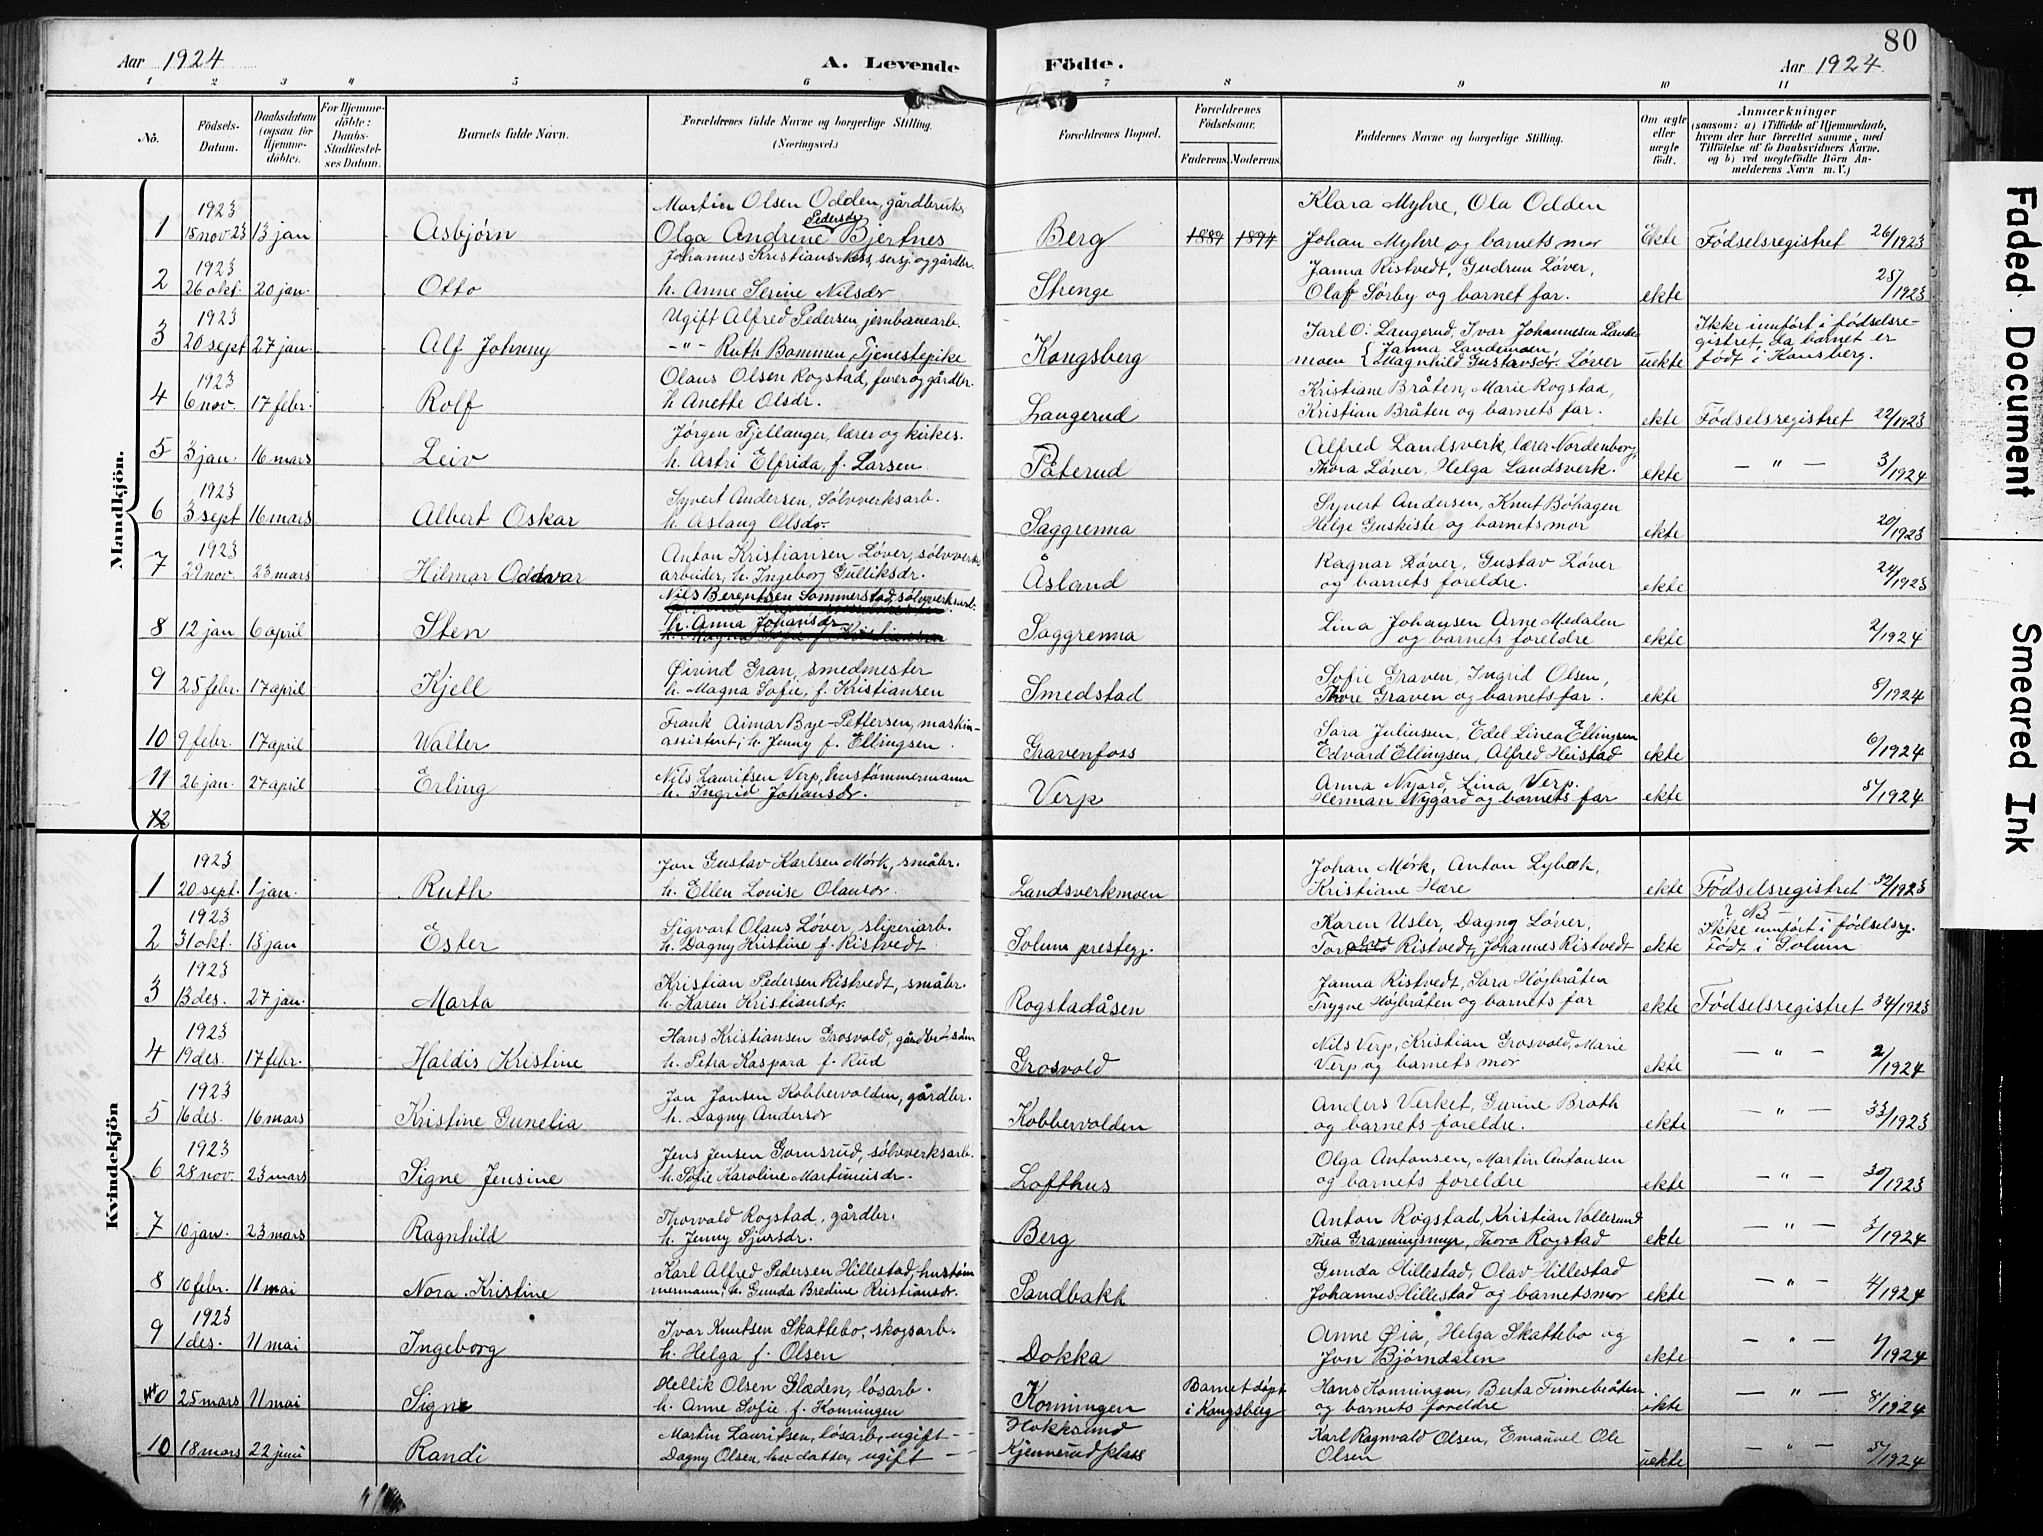 80
Aar 1924
A. Levende Födte.
Aar 1924
1 2 3 4 5 6 7 8 9 10 11
No.
Födsels-Datum.
Daabsdatum (ogsaa for Hjemme-döbte).
For Hjemme-döbte: Daabs-Stadfæstel-ses Datum.
Barnets fulde Navn.
Forældrenes fulde Navne og borgerlige Stilling.
(Næringsvei.)
Forældrenes Bopæl.
Forældrenes Födselsaar.
Faderens. Moderens.
Faddernes Navne og borgerlige Stilling.
Om ægte eller uægte födt.
Anmærkninger
(saasom: a) i Tilfælde af Hjemmedaab, hvem der har forrettet samme, med Tilföielse af to Daabsvidners Navne, og b) ved uægtefödte Börn An-melderens Navn m. V.)
Mandkjön.
1 1923 15 nov 23 13 jan Asbjørn Martin Olsen Odden, gårdbruk. Berg 1889 1894 Klara Myhre, Ola Odden
Olga Andrine Pedersdr Bjertnes Johan Myhre og barnets mor Ekte Födselsregistret 26/1923
2 1923 26 okt. 20 jan. Otto Johannes Kristians. Ness, sersj. og gårdbr. Strenge Janna Ristvedt, Gudrun Løver,
h. Anne Serine Nilsdr Olaf Sørby og barnet far. ekte 25/1923
3 1923 20 sept 27 jan. Alf Johnny Ugift Alfred Pedersen jernbanearb. Kongsberg Jarl O. Langerud, Ivar Johannesen Lande
-"- Ruth Bommen, Tjenestepike moen {Janna Landemoen Magnhild Gustavsdr. Løver uekte Ikke innført i fødselsre-gistret, da barnet er født i Konsberg.
4 1923 6 nov. 17 febr. Rolf Olaus Olsen Rogstad, furer og gårdbr. Langerud Kristiane Bråten, Marie Rogstad,
h Anette Olsdr. Kristian Bråten og barnets far. ekte Födselsregistret 22/1923
5 3 jan. 16 mars Leiv Jørgen Fjellanger, lærer og kirkes. Påterud Alfred Landsverk, lærer Nordenborg,
h. Astri Elfrida, f. Larsen Thora Løver, Helga Landsverk. ekte — " — 3/1924
6 1923 3 sept 16 mars Albert Oskar Syvert Andersen, Sølvverksarb. Saggrenna Syvert Andersen, Knut Bøhagen
h. Aslaug Olsdr. Helge Guskiste og barnets mor ekte 20/1923
7 1923 29 nov. 23 mars Hilmar Oddvar Anton Kristiansen Løver, sølvverks Åsland Ragnar Løver, Gustav Løver
arbeider, h. Ingeborg Gulliksdr. og barnets foreldre. ekte 24/1923
8 12 jan 6 april Sten Nils Berentsen Sommerstad, sølvverksarb. Saggrenna Lina Johansen Arne Medalen
h. Anna Johansdr og barnets foreldre ekte 2/1924
9 25 febr. 17 april Kjell Øivind Gran, smedmester Smedstad Sofie Graven, Ingrid Olsen,
h. Magna Sofie, f. Kristiansen Thore Graven og barnets far. ekte 8/1924
10 9 febr. 17 april Walter Frank Aimar Bye-Pettersen, maskin- Gravenfoss Sara Juliussen, Edel Linea Ellingsen
assistent, h. Jenny f. Ellingsen. Edvard Ellingsen, Alfred Heistad ekte 6/1924
11 26 jan. 27 april Erling Nils Lauritsen Verp, hustømmermann Verp Anna Nygård, Lina Verp.
h. Ingrid Johansdr. Herman Nygård og barnets far ekte 5/1924
12
Kvindekjön
1 1923 20 sept. 1 jan. Ruth Jon Gustav Karlsen Mørk, småbr. Landsverkmoen Johan Mørk, Anton Lybæk,
h. Ellen Lovise Olausdr Kristine Hære ekte Födselsregistret 32/1923
2 1923 31 okt. 13 jan Ester Sigvart Olaus Løver, sliperiarb. Solum prestegj. Karen Usler, Dagny Løver,
h. Dagny Kristine f. Ristvedt Ristvedt, Johannes Ristvedt ekte ? NB — Ikke innført i fødselsreg. Født i Solum
3 1923 13 des. 27 jan. Marta Kristian Pedersen Ristvedt, småbr. Rogstadåsen Janna Ristvedt, Sara Højbråten
h. Karen Kristiansdr. Trygve Højbråten og barnets far ekte Födselsregistret 34/1923
4 1923 19 des. 17 febr. Haldis Kristine Hans Kristiansen Grosvold, gårdbr. søn Grosvold Nils Verp, Kristian Grosvold, Marie
h. Petra Kaspara f. Rud Verp og barnets mor ekte — " — 2/1924
5 1923 16 des. 16 mars Kristine Gunelia Jon Jonsen Kobbervolden, gårdbr. Kobbervolden Anders Verket, Gurine Brath
h. Dagny Andersdr og barnets foreldre. ekte — " — 33/1923
6 1923 28 nov. 23 mars Signe Jensine Jens Jensen Gomsrud, sølvverksarb. Lofthus Olga Antonsen, Martin Antonsen
h. Sofie Karoline Martiniusdr. og barnets foreldre ekte — " — 30/1923
7 10 jan. 23 mars Ragnhild Thorvald Rogstad, gårdbr. Berg Anton Rogstad, Kristian Vollesund
h. Jenny Sjursdr. Thea Graveningsmyr, Thora Rogstad ekte — " — 3/1924
8 10 febr. 11 mai Nora Kristine Karl Alfred Pedersen Hillestad, hustøm Sandbakk Gunda Hillestad, Olav Hillestad
mermann, h. Gunda Bredine Kristiansdr. Johannes Hillestad og barnets mor ekte — " — 4/1924
9 1923 1 des. 11 mai Ingeborg Ivar Knutsen Skattebo, skogsarb. Dokka Anne Øia, Helga Skattebo og
h. Helga f. Olsen Jon Bjørndalen ekte — " — 1/1924
10 25 mars 11 mai Signe Hellik Olsen Glæden, løsarb. Konningen Barnet døpt i Kongsberg Hans Konningen, Berta Finnebråten
h. Anne Sofie f. Konningen og barnets foreldre ekte — " — 8/1924
10 18 mars 22 juni Randi Martin Lauritsen, løsarb., ugift — Hokksund Karl Ragnvald Olsen, Emanuel Ole
Dagny Olsen, hus datter, ugift — Kjennerud plass Olsen uekte — " — 5/1924
Faded Document
Smeared Ink